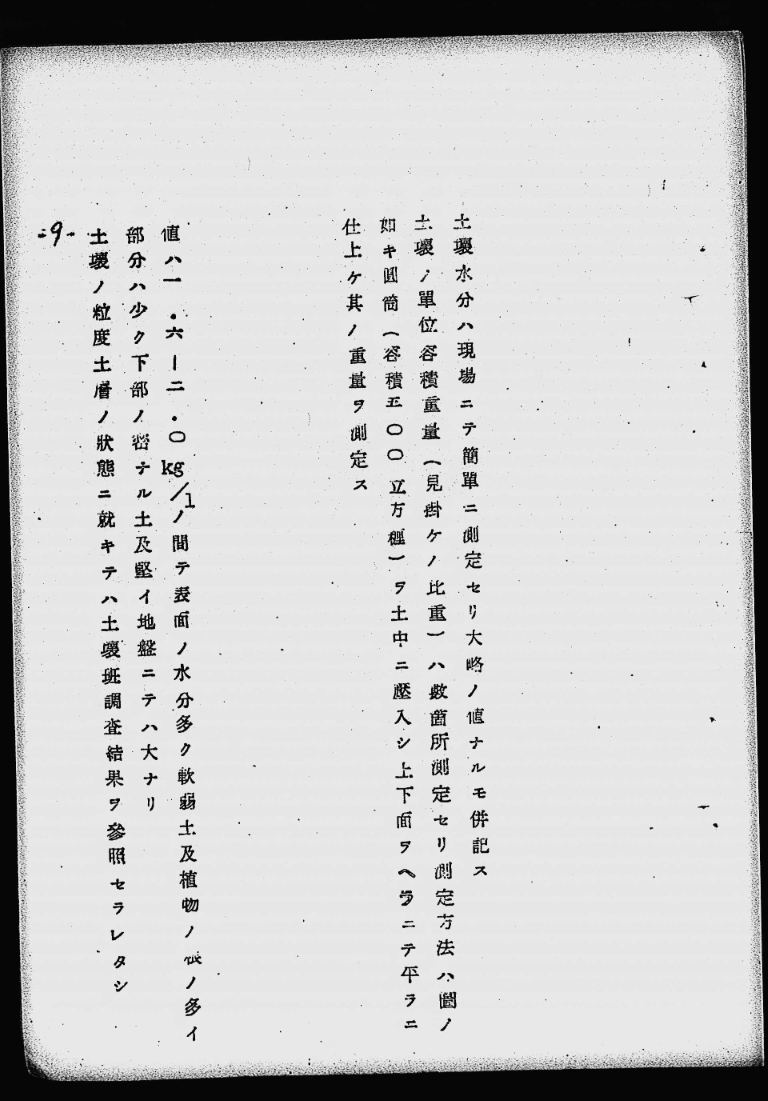 土壤水分ハ現場ニテ簡單ニ測定セリ大略ノ値ナルモ併記ス
土壤ノ單位容積重量（見掛ケノ比重）ハ數箇所測定セリ測定方法ハ圖ノ
如キ圓筒（容積五〇〇立方糎）ヲ土中ニ壓入シ上下面ヲヘラニテ平ラニ
仕上ケ其ノ重量ヲ測定ス
値ハ一・六ー二・〇kg/lノ間テ表面ノ水分多ク軟弱土及植物ノ根ノ多イ
部分ハ少ク下部ノ密ナル土及堅イ地盤ニテハ大ナリ
土壤ノ粒度土層ノ狀態ニ就キテハ土壤班調査結果ヲ參照セラレタシ
-9-